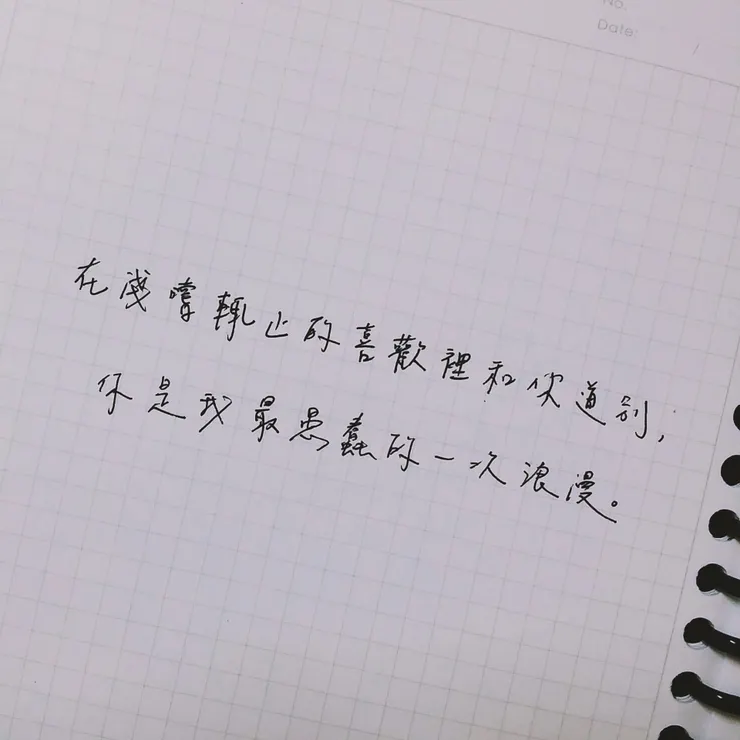 No.
Date:
在淺嚐輒止的喜歡裡和你道別，
你是我最愚蠢的一次浪漫。